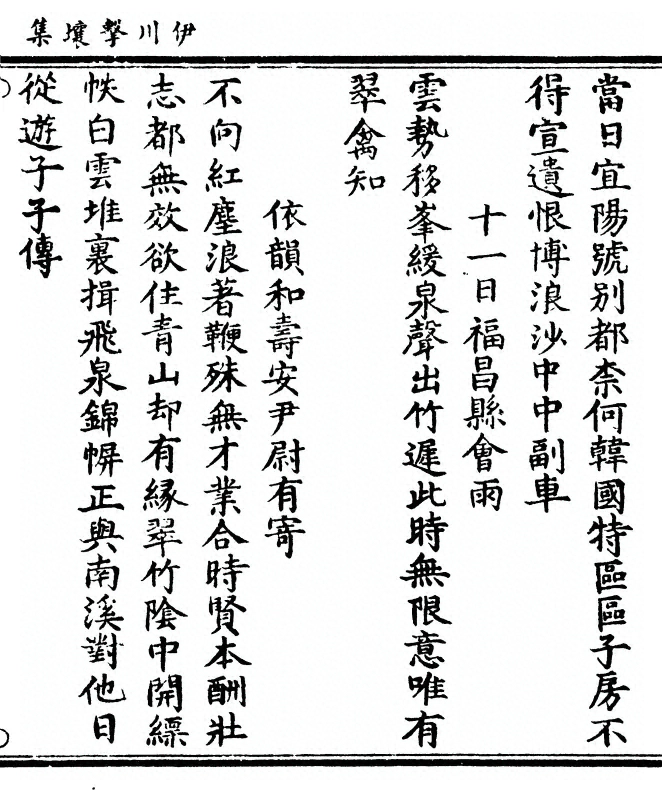 伊川擊壤集
當日宜陽號别都柰何韓國特區區子房不
得宣遺恨博浪沙中中副車
十一日福昌縣會雨
雲勢移峯緩泉聲出竹遲此時無限意唯有
翠禽知
依韻和壽安尹尉有寄
不向紅塵浪著鞭殊無才業合時賢本酬壯
志都無效欲住青山却有緣翠竹陰中開縹
帙白雲堆裏揖飛泉錦幈正與南溪對他日
從遊子子傳